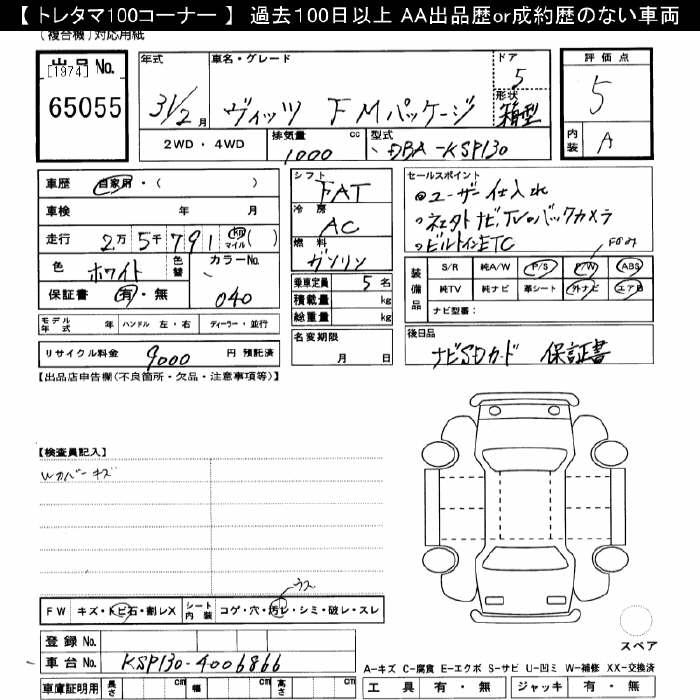 【 トレタマ100コーナー 】 過去100日以上 AA出品歴or成約歴のない車両
(複合機)対応用紙
出品 No.
[1974]
65055
年式 車名・グレード ドア
31/2 月 ヴィッツ FMパッケージ 5
形状 箱型
2WD ・ 4WD 排気量 1000 cc 型式 DBA-KSP130
評価点
5
内装 A
車歴 自家用・( )
車検 年 月
走行 2万 5千 791 km マイル ( )
色 ホワイト 色替 カラーNo. 040
保証書 有・無
モデル年式 年 ハンドル 左・右 ディーラー・並行
リサイクル料金 9000 円 預託済
シフト
FAT
冷房
AC
燃料
ガソリン
乗車定員 5 名
積載量 kg
総重量 kg
名変期限
月 日
セールスポイント
◎ユーザー仕入れ
・ネスタトナビ,TV・バックカメラ
・ビルトインETC
装備品 S/R 純A/W P/S P/W ABS
純TV 純ナビ 革シート 外ナビ エアB
ナビ型番:
後日品
ナビSDカード 保証書
【出品店申告欄(不良箇所・欠品・注意事項等)】
【検査員記入】
Wカバーキズ
ウス
FW キズ・トビ石・割レX シート内装 コゲ・穴・汚レ・シミ・破レ・スレ
登録 No.
車台 No. KSP130-4006866
車庫証明用 長さ cm 幅 cm 高さ cm
スペア
A-キズ C-腐食 E-エクボ S-サビ U-凹ミ W-補修 XX-交換済
工具 有・無 ジャッキ 有・無